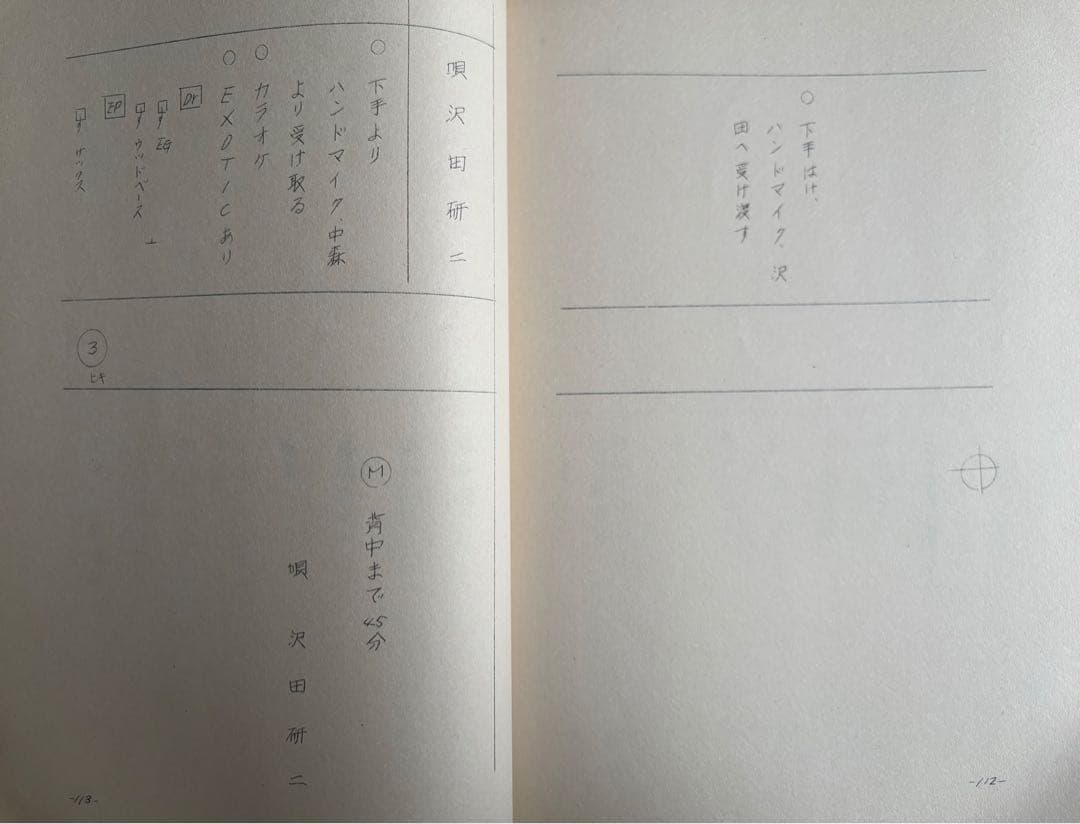 ○ 下手はけ、
ハンドマイク、沢
田へ受け渡す
-112-
唄 沢田研二
○ 下手より
ハンドマイク、中森
より受け取る
○ カラオケ
○ EXOTICあり
Dr
EG
ウッドベース
EP
サックス
3
ヒキ
M 背中まで45分
唄 沢田研二
-113-